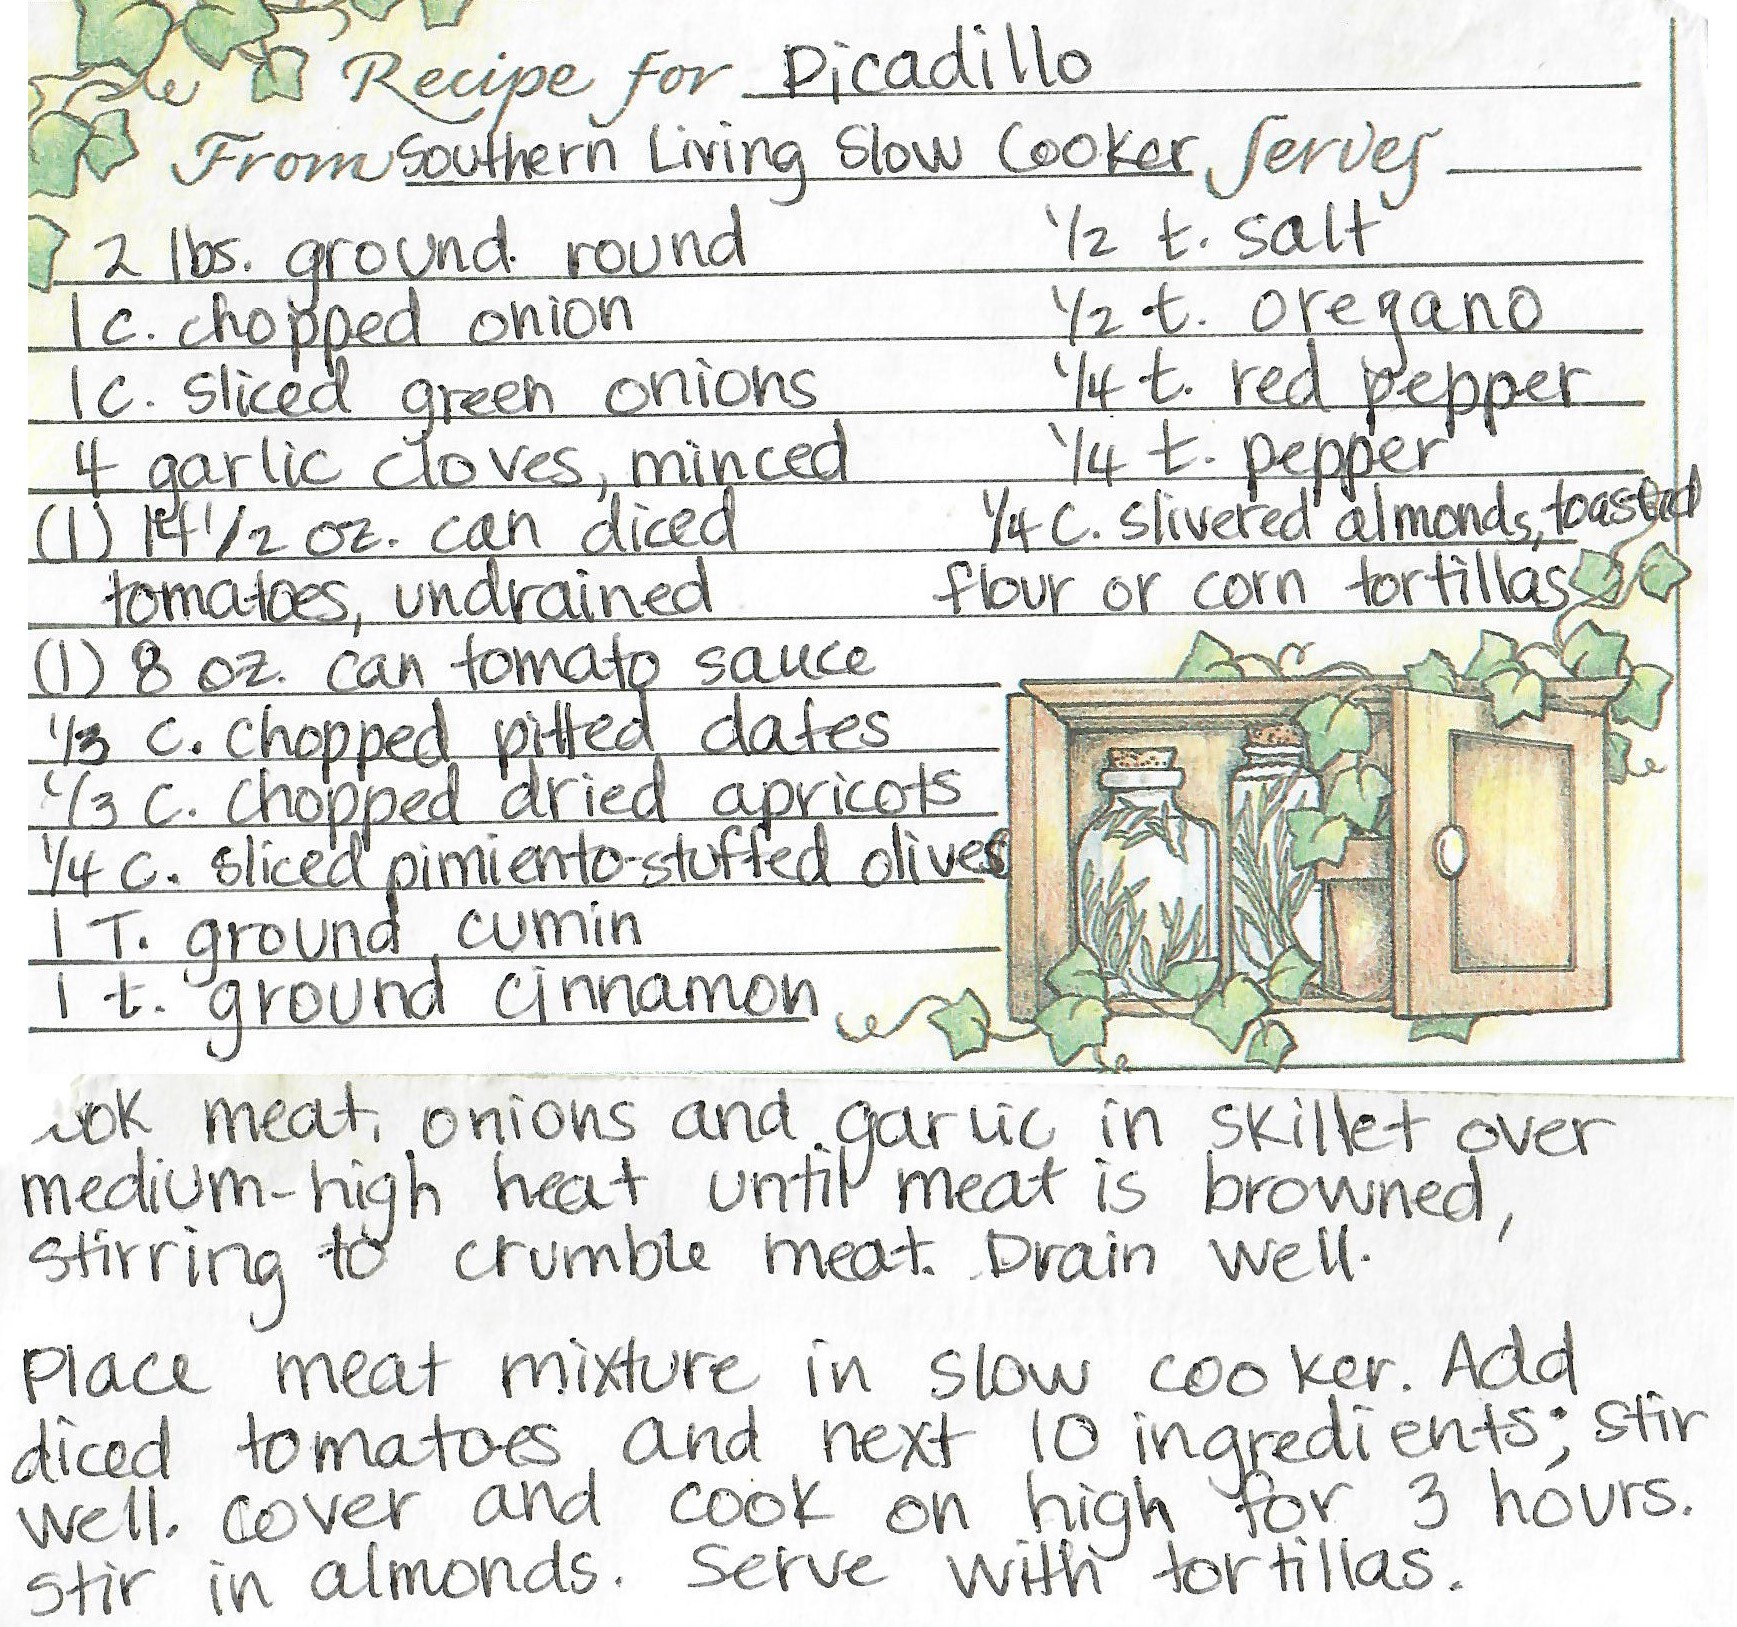 Recipe for Picadillo
From Southern Living Slow Cooker Serves
2 lbs. ground round
1 c. chopped onion
1 c. sliced green onions
4 garlic cloves, minced
(1) 14 1/2 oz. can diced
tomatoes, undrained
(1) 8 oz. can tomato sauce
1/3 c. chopped pitted dates
1/3 c. chopped dried apricots
1/4 c. sliced pimiento-stuffed olives
1 T. ground cumin
1 t. ground cinnamon
1/2 t. salt
1/2 t. oregano
1/4 t. red pepper
1/4 t. pepper
1/4 c. slivered almonds, toasted
flour or corn tortillas
meat, onions and garlic in skillet over
medium-high heat until meat is browned,
stirring to crumble meat. Drain well.
Place meat mixture in slow cooker. Add
diced tomatoes and next 10 ingredients; stir
well. cover and cook on high for 3 hours.
stir in almonds. Serve with tortillas.